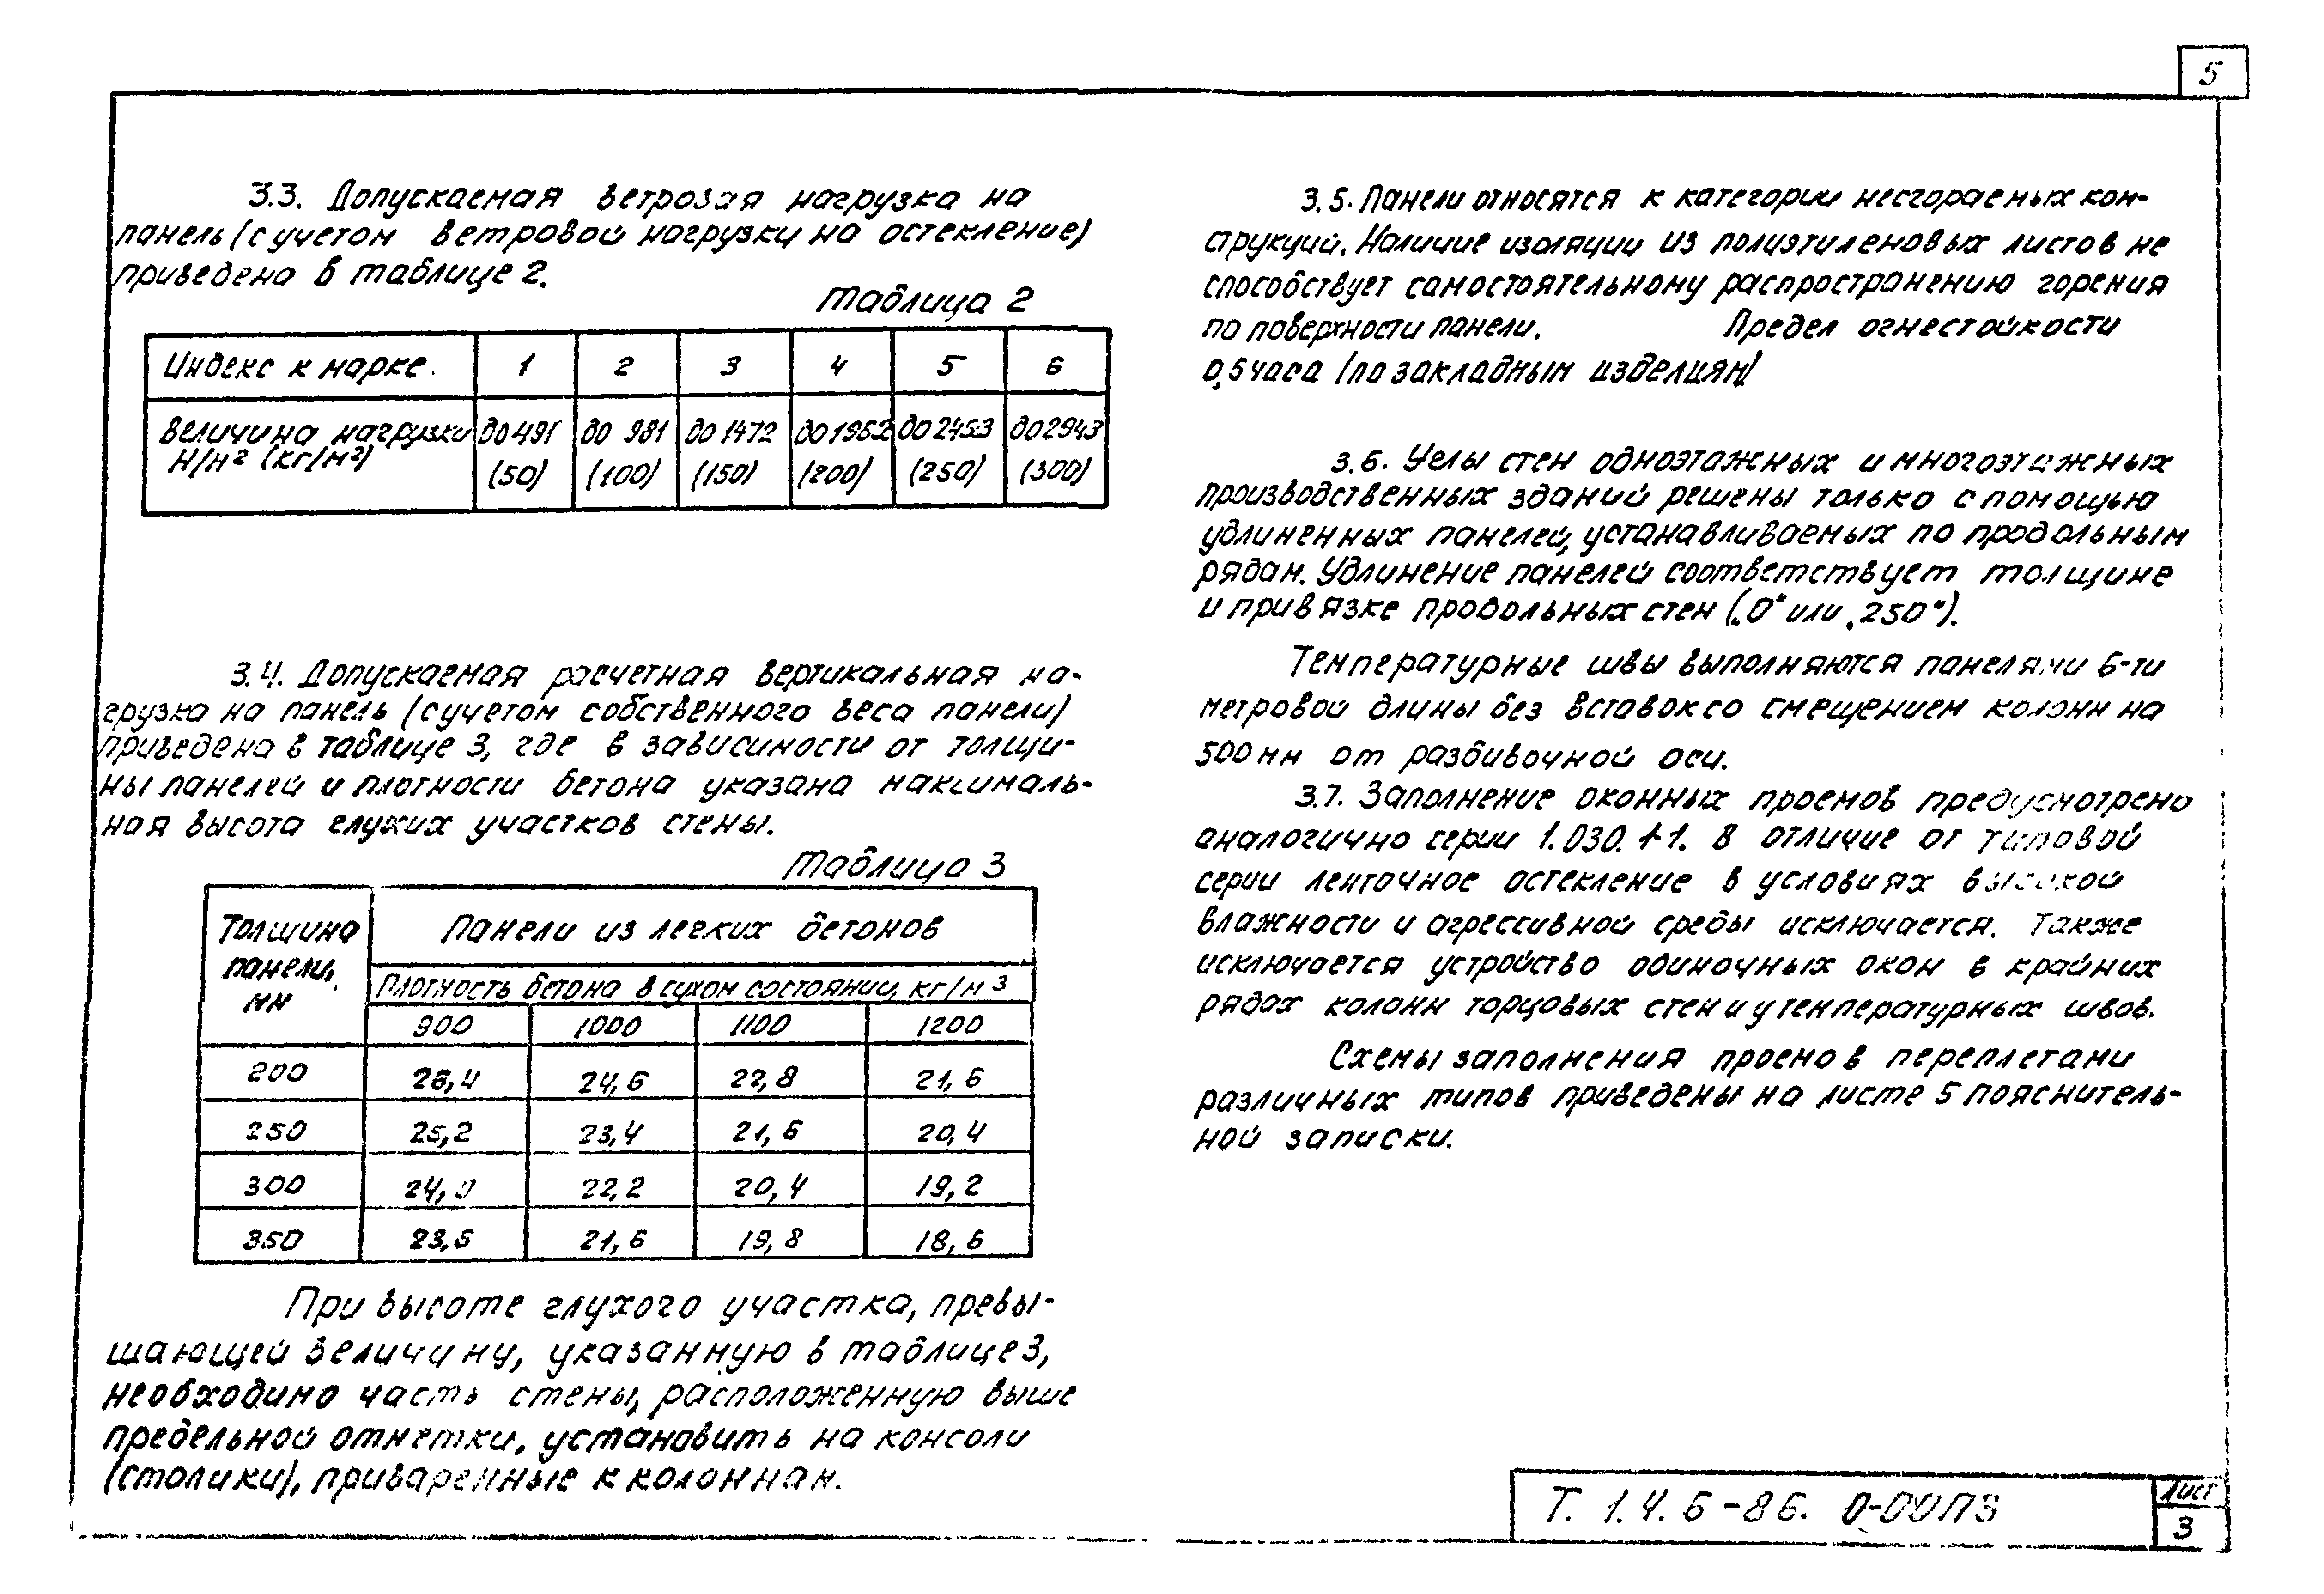 5
3.3. Допускаемая ветровая нагрузка на
панель (с учетом ветровой нагрузки на остекление)
приведена в таблице 2.
Таблица 2
Индекс к марке. 1 2 3 4 5 6
Величина нагрузки до 491 до 981 до 1472 до 1962 до 2453 до 2943
Н/м² (кг/м²) (50) (100) (150) (200) (250) (300)
3.4. Допускаемая расчетная вертикальная на-
грузка на панель (с учетом собственного веса панели)
приведена в таблице 3, где в зависимости от толщи-
ны панелей и плотности бетона указана максималь-
ная высота глухих участков стены.
Таблица 3
Толщина Панели из легких бетонов
панели, Плотность бетона в сухом состоянии, кг/м³
мм 900 1000 1100 1200
200 26,4 24,6 22,8 21,6
250 25,2 23,4 21,6 20,4
300 24,0 22,2 20,4 19,2
350 23,6 21,6 19,8 18,6
При высоте глухого участка, превы-
шающей величину, указанную в таблице 3,
необходимо часть стены, расположенную выше
предельной отметки, установить на консоли
(столики), приваренные к колоннам.
3.5. Панели относятся к категории несгораемых кон-
струкций. Наличие изоляции из полиэтиленовых листов не
способствует самостоятельному распространению горения
по поверхности панели. Предел огнестойкости
0,5 часа (по закладным изделиям)
3.6. Углы стен одноэтажных и многоэтажных
производственных зданий решены только с помощью
удлиненных панелей, устанавливаемых по продольным
рядам. Удлинение панелей соответствует толщине
и привязке продольных стен („0" или „250").
Температурные швы выполняются панелями 6-ти
метровой длины без вставок со смещением колонн на
500 мм от разбивочной оси.
3.7. Заполнение оконных проемов предусмотрено
аналогично серии 1.030.1-1. В отличие от типовой
серии ленточное остекление в условиях высокой
влажности и агрессивной среды исключается. Также
исключается устройство одиночных окон в крайних
рядах колонн торцовых стен и у температурных швов.
Схемы заполнения проемов переплетами
различных типов приведены на листе 5 пояснитель-
ной записки.
Т. 1.4.6-86. 0-00ПЗ
Лист
3